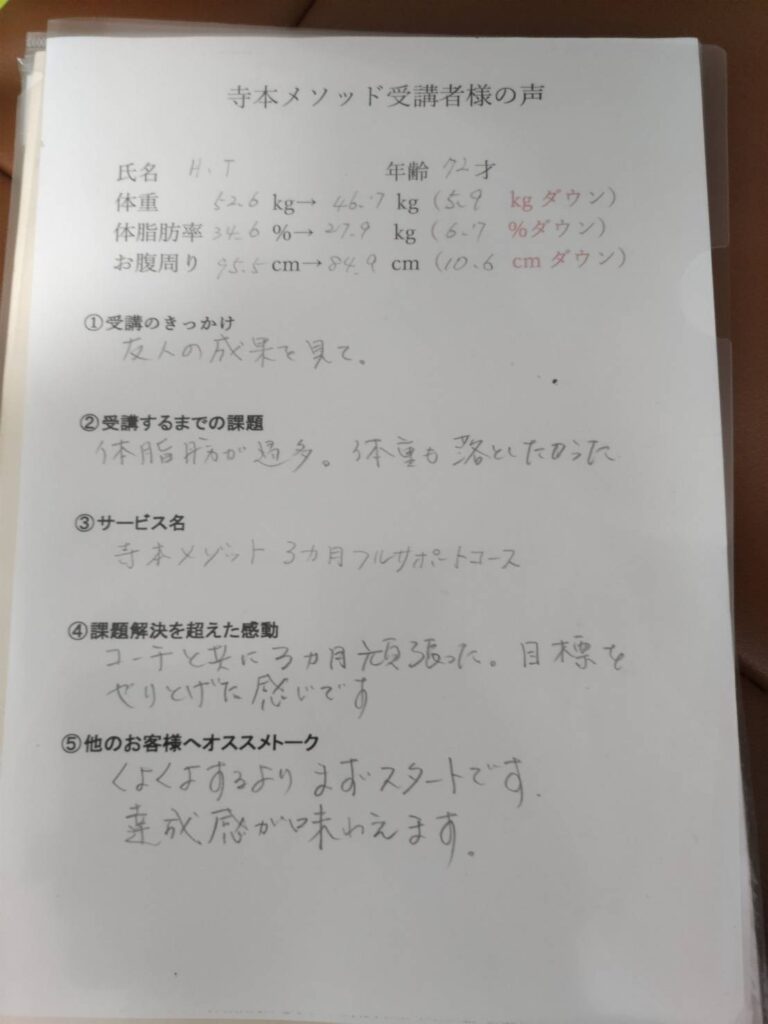 寺本メソッド受講者様の声
氏名 H.T 年齢 72才
体重 52.6 kg→ 46.7 kg (5.9 kgダウン)
体脂肪率 34.6 %→ 27.9 kg (6.7 %ダウン)
お腹周り 95.5 cm→ 84.9 cm (10.6 cmダウン)
①受講のきっかけ
友人の成果を見て。
②受講するまでの課題
体脂肪が過多。体重も落としたかった
③サービス名
寺本メゾット 3カ月フルサポートコース
④課題解決を超えた感動
コーチと共に3カ月頑張った。目標を
やりとげた感じです
⑤他のお客様へオススメトーク
くよくよするより まずスタートです.
達成感が味わえます。